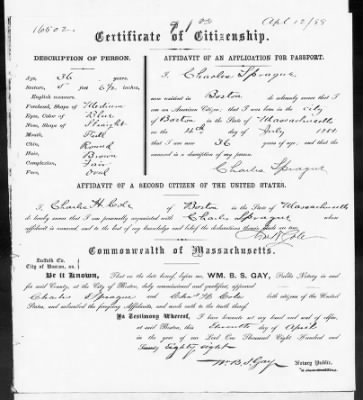 16502.
Apl 12/88
Certificate of Citizenship.
DESCRIPTION OF PERSON.
Age, 36 years.
Stature, 5 feet 6½ inches,
English measure.
Forehead, Shape of Medium
Eyes, Color of Blue
Nose, Shape of Straight
Mouth, Full
Chin, Round
Hair, Brown
Complexion, Fair
Face, Oval
AFFIDAVIT OF AN APPLICATION FOR PASSPORT.
I, Charles Sprague
now resident in Boston do solemnly swear that I
am an American Citizen; that I was born in the city
of Boston in the State of Massachusetts
on the 4th day of July
that I am now 36 years of age, and that the
annexed is a description of my person.
Charles Sprague
AFFIDAVIT OF A SECOND CITIZEN OF THE UNITED STATES.
I, Charles H. Cole of Boston in the State of Massachusetts
do hereby swear that I am personally acquainted with Charles Sprague whose
affidavit is annexed, and to the best of my knowledge and belief the declarations therein made are true.
Cole
Commonwealth of Massachusetts.
Suffolk Ss.
City of Boston, ss.
Be it Known, That on the date hereof, before me, WM. B. S. GAY, Public Notary in and
for said County, at the City of Boston, duly commissioned and qualified, appeared
Charles Sprague Chas H. Cole both citizens of the United
States, and subscribed the foregoing Affidavits, and made oath to the truth thereof.
In Testimony Whereof, I have hereunto set my hand and seal of office,
at said Boston, this eleventh day of April
in the year of our Lord One Thousand Eight Hundred and
Eighty eight
Wm B. S. Gay Notary Public.